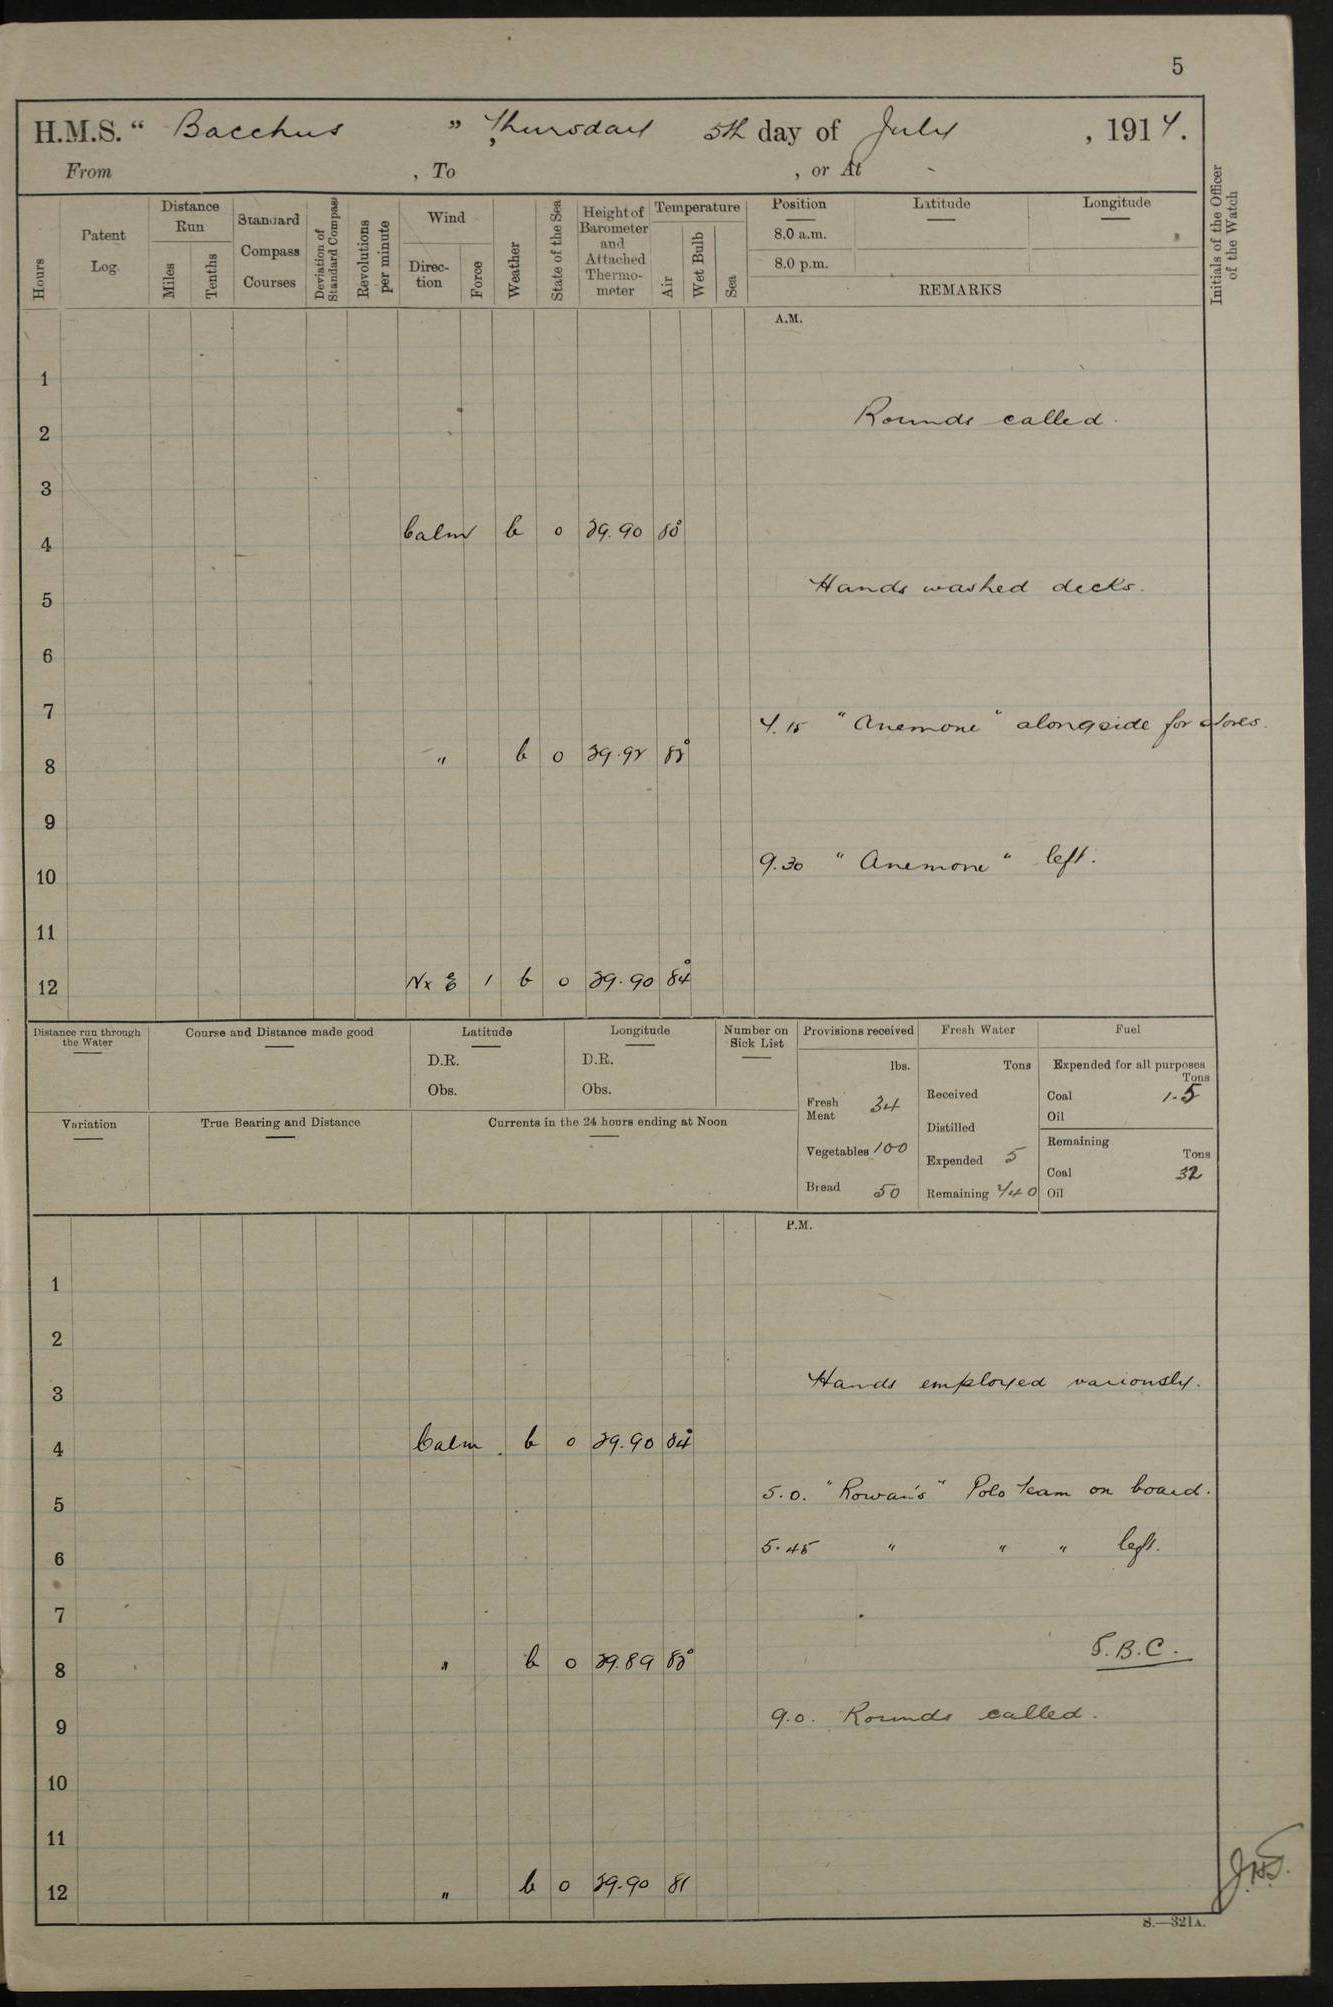 5
H.M.S. " Bacchus ", Thursday 5th day of July, 1917.
From , To , or At -
Hours
Patent Log.
Distance Run
Miles
Tenths
Standard Compass Courses
Deviation of Standard Compass
Revolutions per minute
Wind
Direc-tion
Force
Weather
State of the Sea
Height of Barometer and Attached Thermo-meter
Temperature
Air
Wet Bulb
Sea
Position
8.0 a.m.
8.0 p.m.
Latitude
Longitude
REMARKS
Initials of the Officer of the Watch
A.M.
1
2 Rounds called.
3
4 Calm b 0 29.90 80°
5 Hands washed decks.
6
7 7.15 "Anemone" alongside for stores.
8 " b 0 29.92 82°
9
10 9.30 "Anemone" left.
11
12 N x E 1 b 0 29.90 84°
Distance run through the Water
Course and Distance made good
Latitude
D.R.
Obs.
Longitude
D.R.
Obs.
Number on Sick List
Provisions received
lbs.
Fresh Meat 34
Vegetables 100
Bread 50
Fresh Water
Tons
Received
Distilled
Expended 5
Remaining 240
Fuel
Expended for all purposes
Tons
Coal 1.5
Oil
Remaining
Tons
Coal 32
Oil
Variation
True Bearing and Distance
Currents in the 24 hours ending at Noon
P.M.
1
2
3 Hands employed variously.
4 Calm b 0 29.90 84°
5 5.0. "Rowan's" Polo team on board.
6 5.45 " " " left.
7
8 " b 0 29.89 82° S.B.C.
9 9.0. Rounds called.
10
11
12 " b 0 29.90 81
S.—321A.